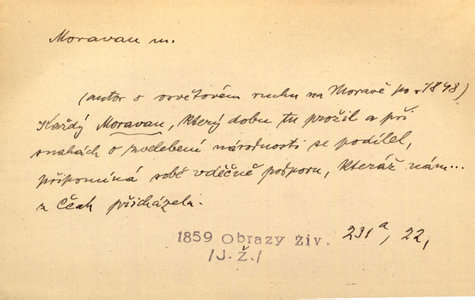 Moravan m.
(autor o osvětovém ruchu na Moravě po r. 1848)
Každý Moravan, který dobu tu prožil a při
snahách o zvelebení národnosti se podílel,
připomíná sobě vděčně podporu, kteráž nám...
z Čech přicházela.
1859 Obrazy živ. 231a, 22,
/J.ž./